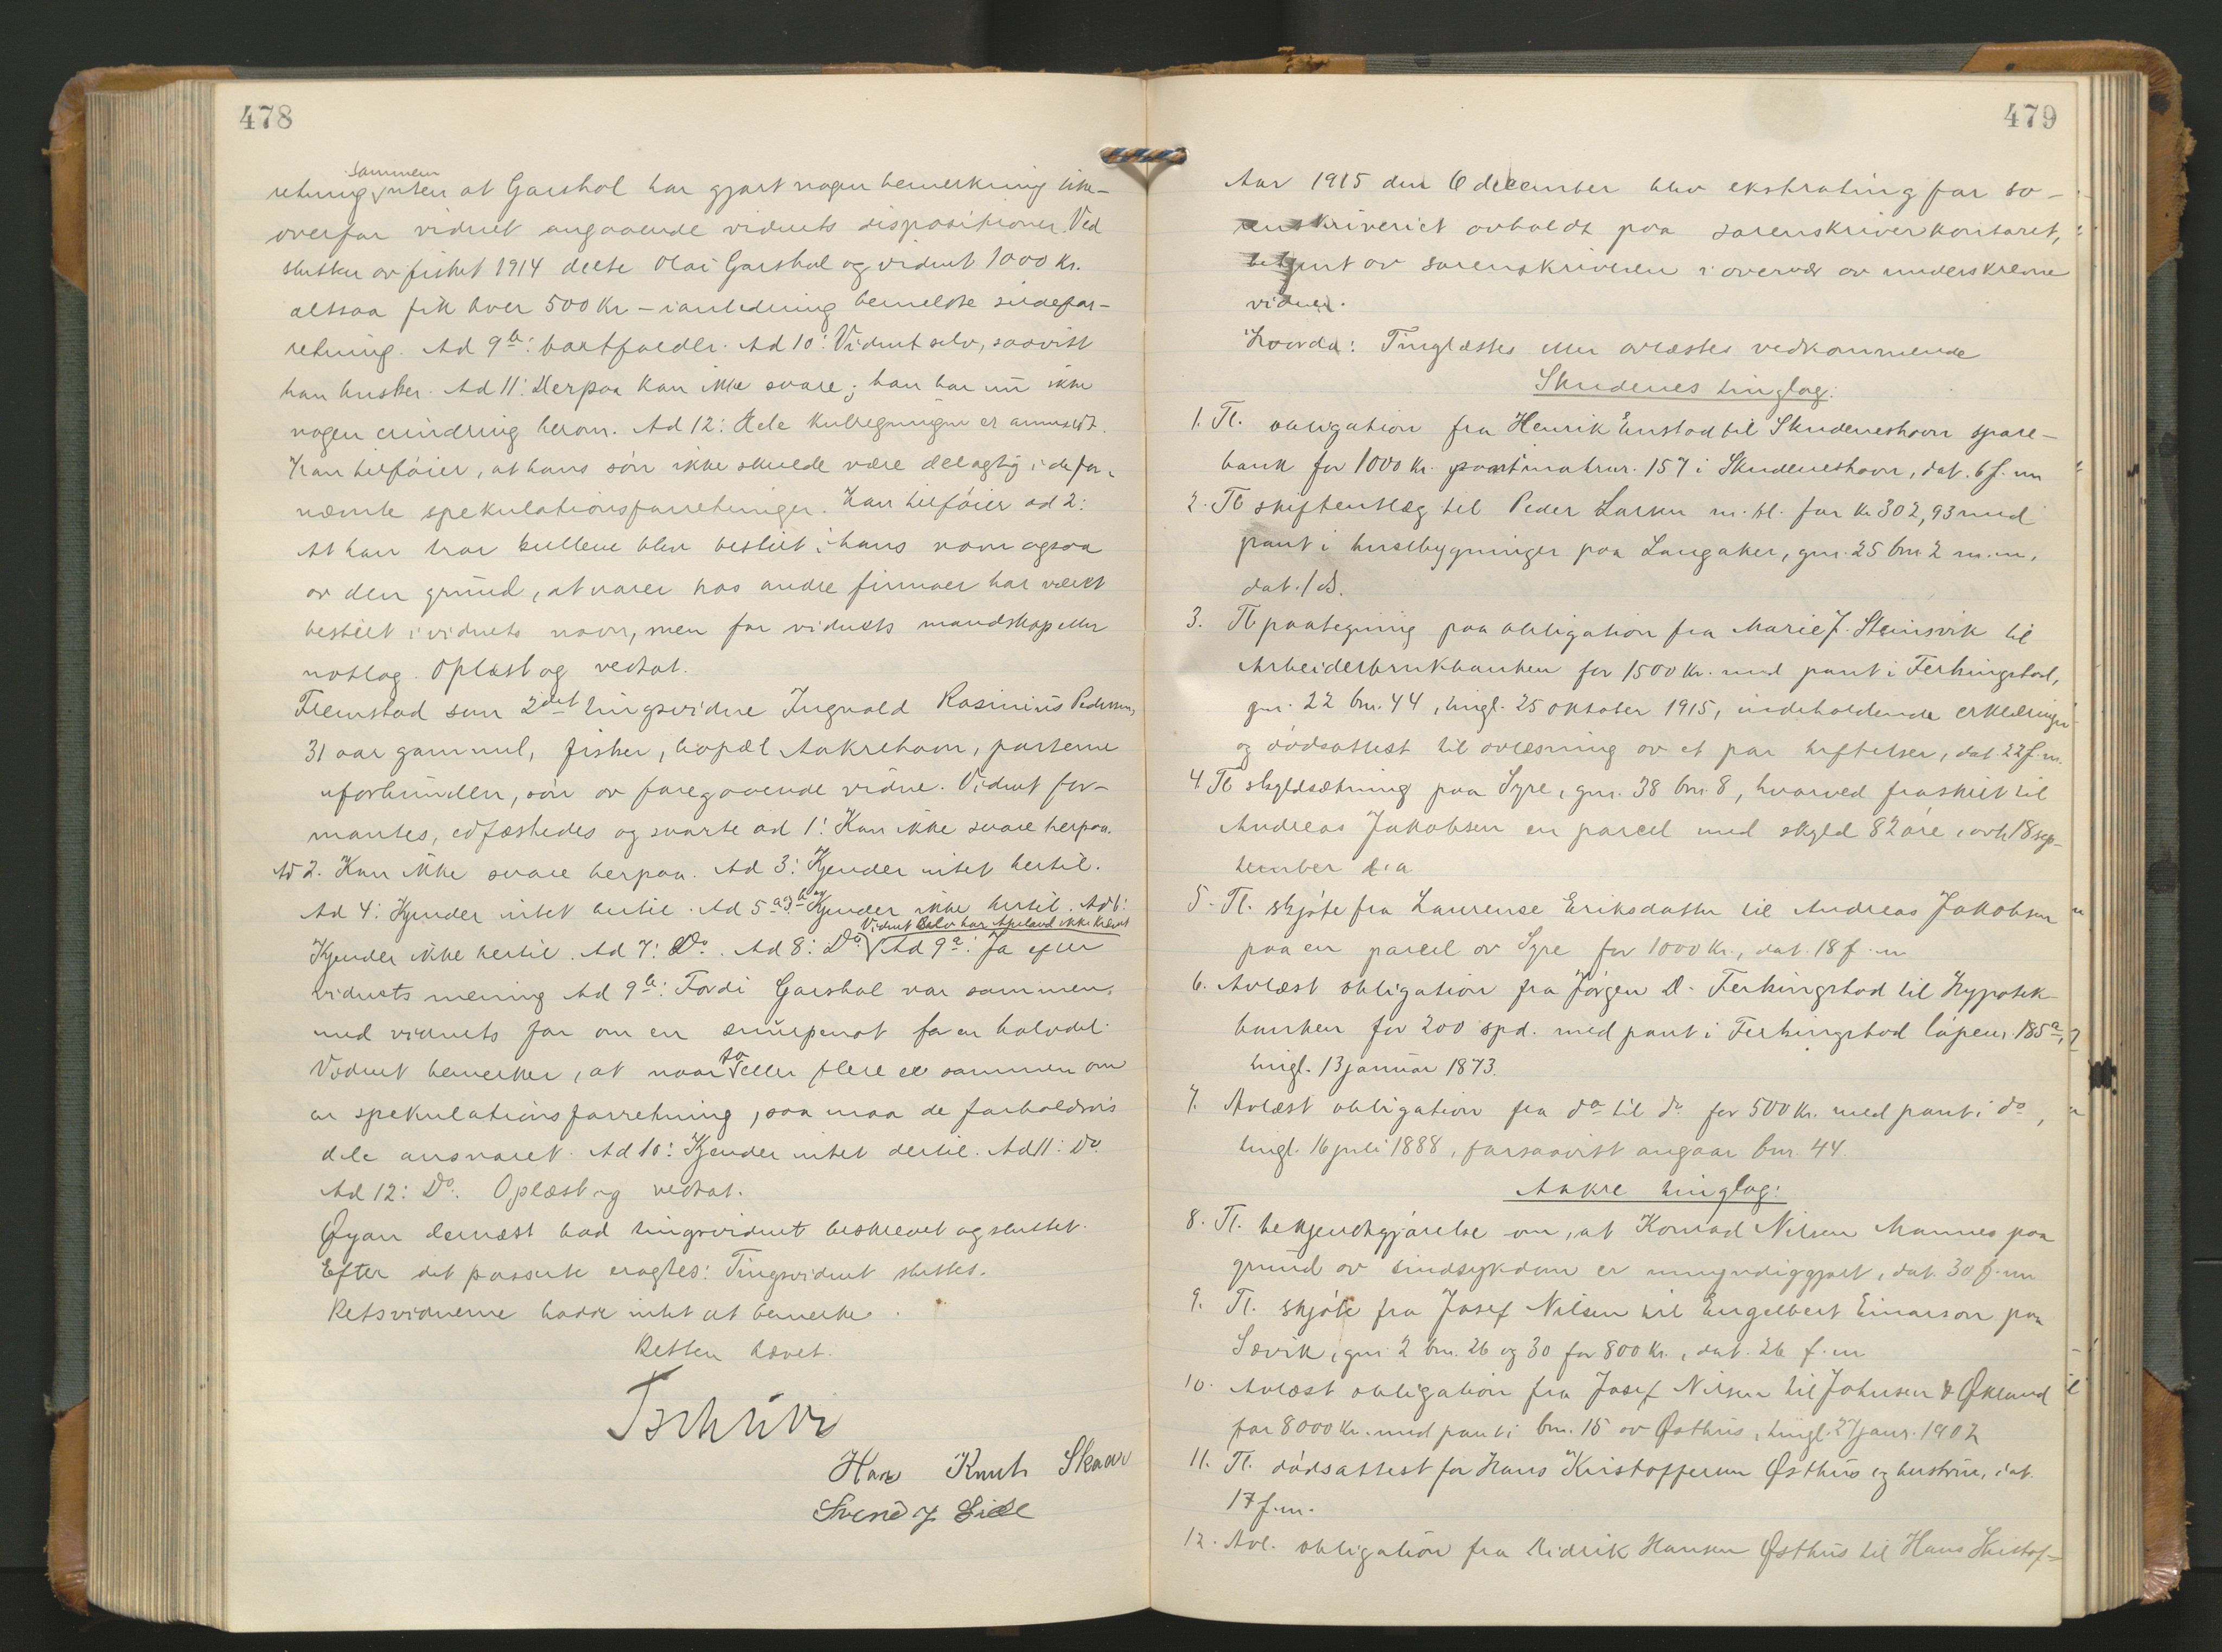 478
retning sammen uten at Garshol har gjort nogen bemerkning like-
overfor vidnet angaaende vidnets dispositioner. Ved
slutten av fisket 1914 delte Olai Garshol og vidnet 1000 kr.
altsaa fik hver 500 kr – i anledning bemeldte sildefor-
retning. Ad 9b: bortfalder. Ad 10: Vidnet selv, saavidt
han husker. Ad 11: Derpaa kan ikke svare; han har nu ikke
nogen erindring herom. Ad 12: Hele kulregningen er anmeldt.
Han tilføier, at hans søn ikke skulde være delagtig i de for-
nævnte spekulationsforretninger. Han tilføier ad 2:
At han tror kullene blev bestilt i hans navn ogsaa
av den grund, at varer hos andre firmaer har været
bestilt i vidnets navn, men for vidnets mandskap eller
notlag. Oplæst og vedtat.
Fremstod som 2det tingsvidne Ingvald Rasinius Pedersen,
31 aar gammel, fisker, bopæl Aakrehavn, parterne
uforbunden, søn av foregaaende vidne. Vidnet for-
mantes, edfæstedes og svarte ad 1: Kan ikke svare herpaa.
Ad 2. Kan ikke svare herpaa. Ad 3: Kjender intet hertil.
Ad 4: Kjender intet hertil. Ad 5 a og b: Kjender ikke hertil. Ad 6:
Vidnet selv har Apeland ikke krævet
Kjender ikke hertil. Ad 7: Do. Ad 8: Do. Ad 9a: Ja efter
vidnets mening Ad 9b: Fordi Garshol var sammen
med vidnets far om en snurpenot for en halvdel.
Vidnet bemerker, at naar to eller flere er sammen om
en spekulationsforretning, saa maa de forholdsvis
dele ansvaret. Ad 10: Kjender intet dertil. Ad 11: Do.
Ad 12: Do. Oplæst og vedtat.
Øyan dernæst bad tingsvidnet beskrevet og sluttet.
Efter det passerte eragtes: Tingsvidnet sluttet.
Retsvidnerne hadde intet at bemerke.
Retten hævet.
Tschudi
Hans Knut Skaar
Svend J Lie
479
Aar 1915 den 6 december blev ekstrating for so-
renskriveriet avholdt paa sorenskriverkontoret,
betjent av sorenskriveren i overvær av underskrevne
vidner.
Hvorda: Tinglæstes eller avlæstes vedkommende
Skudenes tinglag:
1. Tl. obligation fra Henrik Enstad til Skudeneshavn spare-
bank for 1000 kr. pant i matrnr. 157 i Skudeneshavn, dat. 6 f.m
2. Tl skifteutlæg til Peder Larsen m. fl. for kr 302,93 med
pant i husebygninger paa Langaker, gnr. 25 bnr 2 m.m.
dat. 1 ds.
3. Tl paategning paa obligation fra Marie J. Steinsvik til
Arbeiderbrukbanken for 1500 kr. med pant i Ferkingstad,
gnr. 22 bnr. 44, tingl. 25 oktober 1915, indeholdende erklæringer
og dødsattest til avlæsning av et par heftelser, dat. 22 f.m.
4 Tl skyldsætning paa Syre, gnr. 38 bnr. 8, hvorved fraskilt til
Andreas Jakobsen en parcel med skyld 82 øre, avh. 18 sep-
tember d.a
5. Tl. skjøte fra Laurense Eriksdatter til Andreas Jakobsen
paa en parcel av Syre for 1000 kr., dat. 18 f.m
6. Avlæst obligation fra Jørgen D. Ferkingstad til Hypotek-
banken for 200 spd. med pant i Ferkingstad løpenr. 185a,
tingl. 13 januar 1873.
7. Avlæst obligation fra do til do for 500 kr. med pant i do,
tingl. 16 juli 1888, forsaavidt angaar bnr. 44.
Aakre tinglag:
8. Tl. bekjendtgjørelse om, at Konrad Nilsen Mannes paa
grund av sindsykdom er umyndiggjort, dat. 30 f.m
9. Tl. skjøte fra Josef Nilsen til Engelbert Einarson paa
Sævik, gnr. 2 bnr. 26 og 30 for 800 kr., dat. 26 f.m
10. Avlæst obligation fra Josef Nilsen til Johnsen & Økland
for 8000 kr. med pant i bnr. 15 av Østhus, tingl. 27 janr. 1902
11. Tl. dødsattest for Hans Kristoffersen Østhus og hustru, dat.
17 f.m.
12. Avl. obligation fra Didrik Hansen Østhus til Hans Kristof-